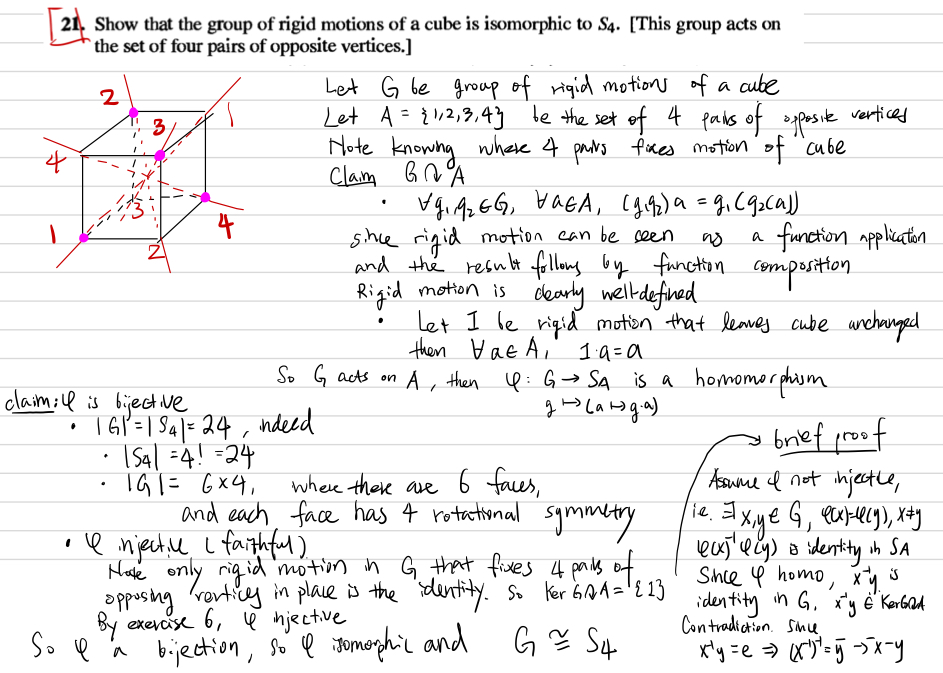 21. Show that the group of rigid motions of a cube is isomorphic to S₄. [This group acts on
the set of four pairs of opposite vertices.]
2
1
3
4
3
1
2
4
Let G be group of rigid motions of a cube
Let A = {1,2,3,4} be the set of 4 pairs of opposite vertices
Note knowing where 4 pairs fixes motion of cube
Claim G↷A
• ∀g₁,g₂∈G, ∀a∈A, (g₁g₂)a = g₁(g₂(a))
since rigid motion can be seen as a function application
and the result follows by function composition
Rigid motion is clearly well-defined
• Let I be rigid motion that leaves cube unchanged
then ∀a∈A, 1·a=a
So G acts on A, then φ: G → S_A is a homomorphism
g ↦ (a ↦ g·a)
claim: φ is bijective
• |G| = |S₄| = 24, indeed
• |S₄| = 4! = 24
• |G| = 6×4, where there are 6 faces,
and each face has 4 rotational symmetry
• φ injective (faithful)
Note only rigid motion in G that fixes 4 pairs of
opposing vertices in place is the identity. So Ker G↷A = {1}
By exercise 6, φ injective
So φ a bijection, so φ isomorphic and G ≅ S₄
brief proof
Assume φ not injective,
i.e. ∃x,y∈G, φ(x)=φ(y), x≠y
φ(x)⁻¹φ(y) is identity in S_A
Since φ homo, x⁻¹y is
identity in G, x⁻¹y ∈ Ker G↷A
Contradiction. Since
x⁻¹y = e ⇒ (x⁻¹)⁻¹ = y → x=y